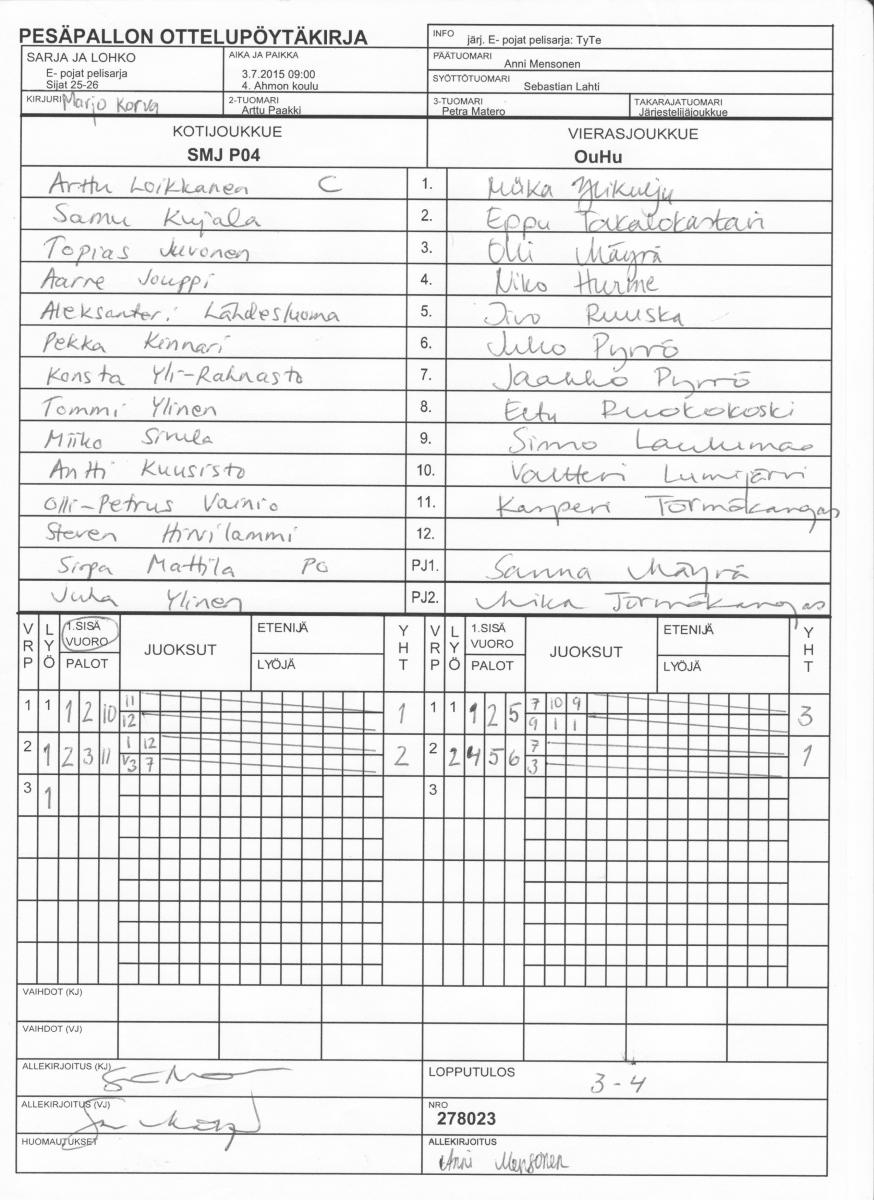 PESÄPALLON OTTELUPÖYTÄKIRJA
INFO järj. E- pojat pelisarja: TyTe
SARJA JA LOHKO
E- pojat pelisarja
Sijat 25-26
AIKA JA PAIKKA
3.7.2015 09:00
4. Ahmon koulu
PÄÄTUOMARI
Anni Mensonen
SYÖTTÖTUOMARI
Sebastian Lahti
KIRJURI Marjo Korva
2-TUOMARI
Arttu Paakki
3-TUOMARI
Petra Matero
TAKARAJATUOMARI
Järjestelijäjoukkue
KOTIJOUKKUE VIERASJOUKKUE
SMJ P04 OuHu
Arttu Loikkanen C 1. Miika Ylikulju
Samu Kujala 2. Eppu Takalokastari
Topias Juvonen 3. Olli Mäyrä
Aarre Jouppi 4. Niko Hurme
Aleksanteri Lähdesluoma 5. Iivo Ruuska
Pekka Kinnari 6. Juho Pyrrö
Konsta Yli-Rahnasto 7. Jaakko Pyrrö
Tommi Ylinen 8. Eetu Ruokokoski
Miiko Sivula 9. Simo Laulumaa
Antti Kuusisto 10. Valtteri Lumijärvi
Olli-Petrus Vainio 11. Kasperi Törmäkangas
Steven Hirvilammi 12.
Sirpa Mattila PO PJ1. Sanna Mäyrä
Juha Ylinen PJ2. Mika Törmäkangas
VRP LYÖ 1.SISÄ VUORO PALOT JUOKSUT ETENIJÄ LYÖJÄ YHT VRP LYÖ 1.SISÄ VUORO PALOT JUOKSUT ETENIJÄ LYÖJÄ YHT
1 1 1 2 10 11 1 1 1 1 2 5 7 10 9 3
12 9 1 1
2 1 2 3 11 1 12 2 2 2 4 5 6 7 1
V3 7 3
3 1 3
VAIHDOT (KJ)
VAIHDOT (VJ)
ALLEKIRJOITUS (KJ)
LOPPUTULOS
3-4
ALLEKIRJOITUS (VJ)
NRO
278023
HUOMAUTUKSET
ALLEKIRJOITUS
Anni Mensonen